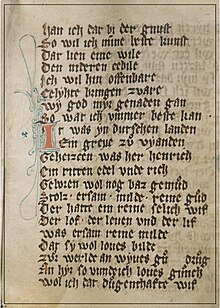 han ich dar bi der gunst
So wil ich mine beste kunst
Dar lien eine wile
Den mederen zedile
Ich wil hin offenbare
Gelyhte bringen zware
Wy god myr genaden gan
So war ich ummer beste han
Ir was yn durschen landen
Ein greve zu vyanden
Geheizen was her henrich
Ein ritter edel unde rich
Gewien wol noz baz gemud
Stolz ersam milde reine gud
Der hatte ein reine selich wif
Der lof der leven und der lif
was ersam reine milde
Dar sy wol loves bilde
zu werlde an wyves
An hyr so vundich loves
wol ich dar dugenhafte wif